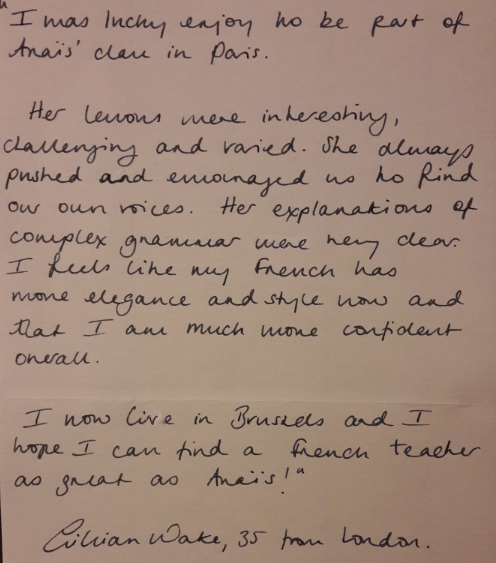 "I was lucky enjoy to be part of
Anaïs' class in Paris.
Her lessons were interesting,
challenging and varied. She always
pushed and encouraged us to find
our own voices. Her explanations of
complex grammar were very clear.
I feels like my French has
more elegance and style now and
that I am much more confident
overall.
I now live in Brussels and I
hope I can find a French teacher
as great as Anaïs!"
Lillian Wake, 35 from London.